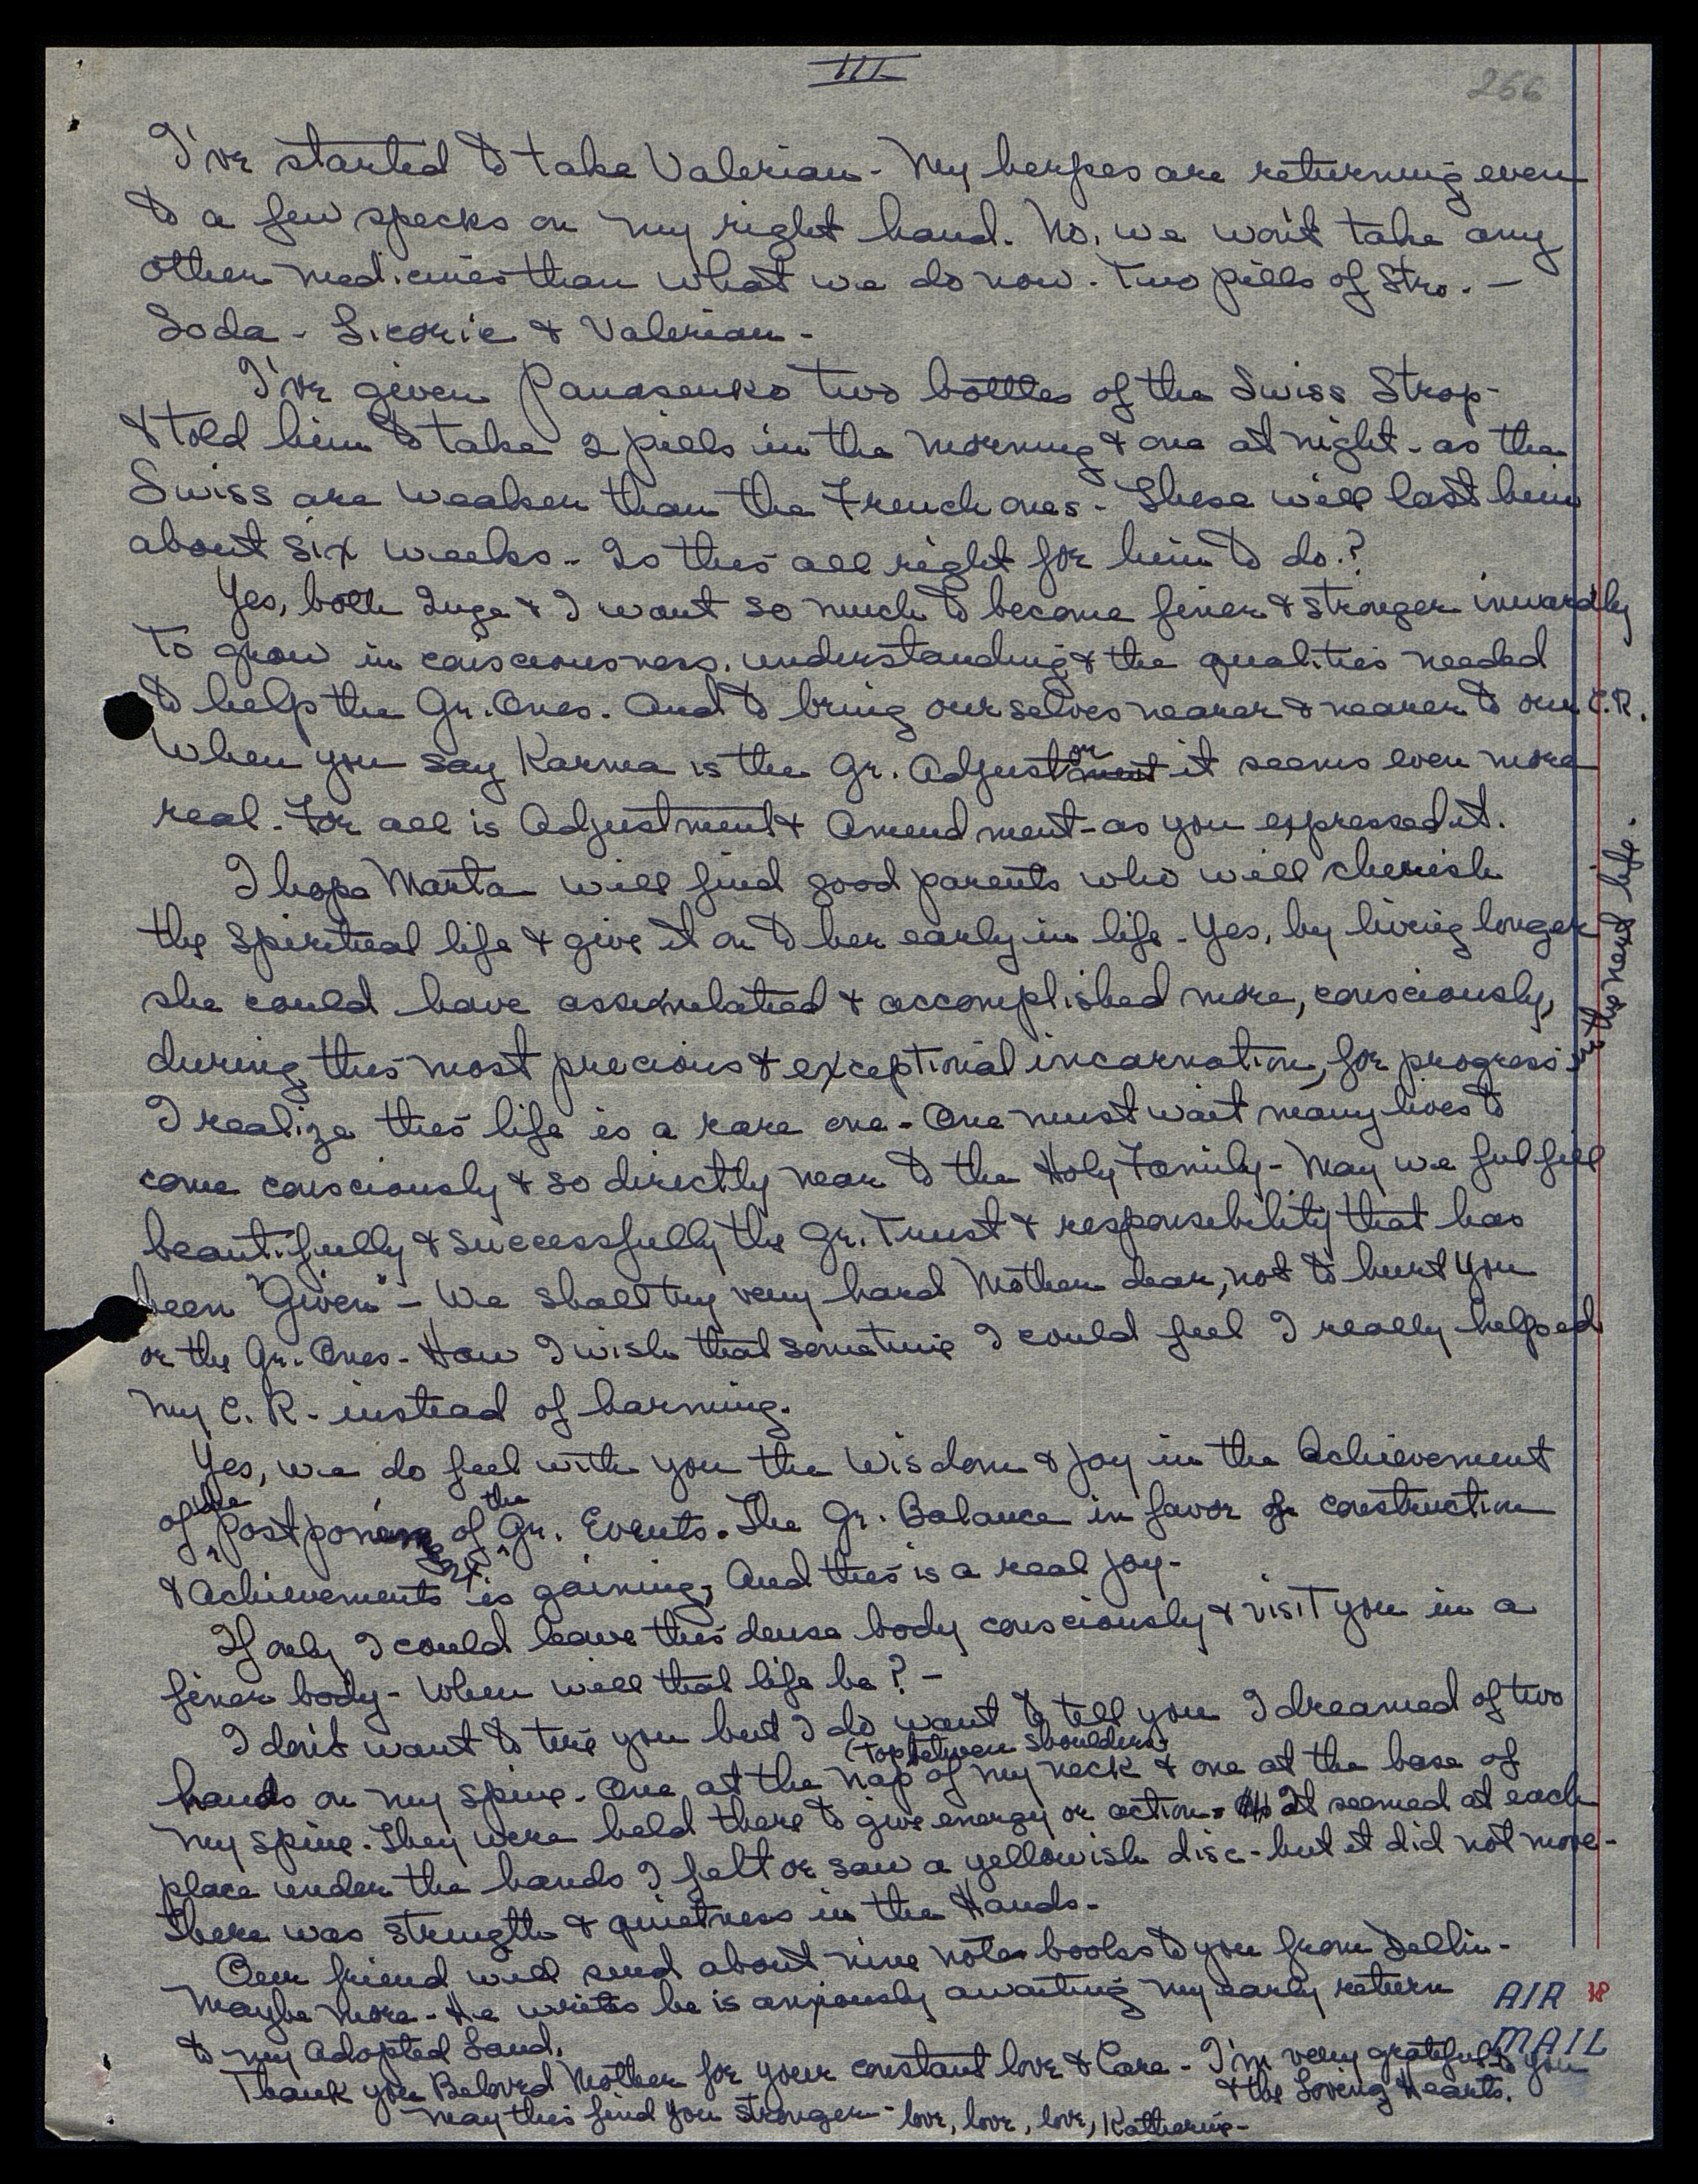 III
266
I've started to take Valerian - My herpes are returning even
to a few specks on my right hand. No, we won't take any
other medicines than what we do now. Two pills of Stro. -
Soda - Licorie & Valerian -
I've given Panasenko two bottles of the Swiss Strop-
& told him to take 2 pills in the morning & one at night - as the
Swiss are weaker than the French ones - These will last him
about six weeks - Is this all right for him to do?
Yes, both Inge & I want so much to become finer & stronger inwardly
to grow in consciousness, understanding & the qualities needed
to help the Gr. Ones. And to bring ourselves nearer & nearer to our C.R.
When you say Karma is the Gr. Adjustor it seems even more
real - For all is Adjustment & Amendment - as you expressed it.
I hope Marta will find good parents who will cherish
the spiritual life & give it on to her early in life - Yes, by living longer
she could have assimelatied & accomplished more, consciously,
during this most precious & exceptional incarnation, for progress
in the next life.
I realize this life is a rare one - One must wait many lives to
come consciously & so directly near to the Holy Family - May we fulfill
beautifully & successfully the Gr. Trust & responsebility that has
been "Given" - We shall try very hard Mother dear, not to hurt you
or the Gr. Ones - How I wish that sometime I could feel I really helped
my C. R. - instead of harming.
Yes, we do feel with you the Wisdom & joy in the Achievement
of the postponement of the Gr. Events. The Gr. Balance in favor of construction
& Achievements is gaining, And this is a real joy -
If only I could leave this dense body consciously & visit you in a
finer body - When will that life be? -
I don't want to tire you but I do want to tell you I dreamed of two
(top between shoulders)
hands on my spine - One at the nap of my neck & one at the base of
my spine. They were held there to give energy or action - It seemed at each
place under the hands I felt or saw a yellowish disc - but it did not move -
There was strength & quietness in the Hands -
Our friend will send about nine note books to you from Delhi -
Maybe more - He writes he is anxiously awaiting my early return
to my Adopted Land.
Thank you Beloved Mother for your constant love & Care - I'm very grateful to you
& the Loving Hearts.
May this find you stronger - love, love, love, Katherine -
AIR
MAIL